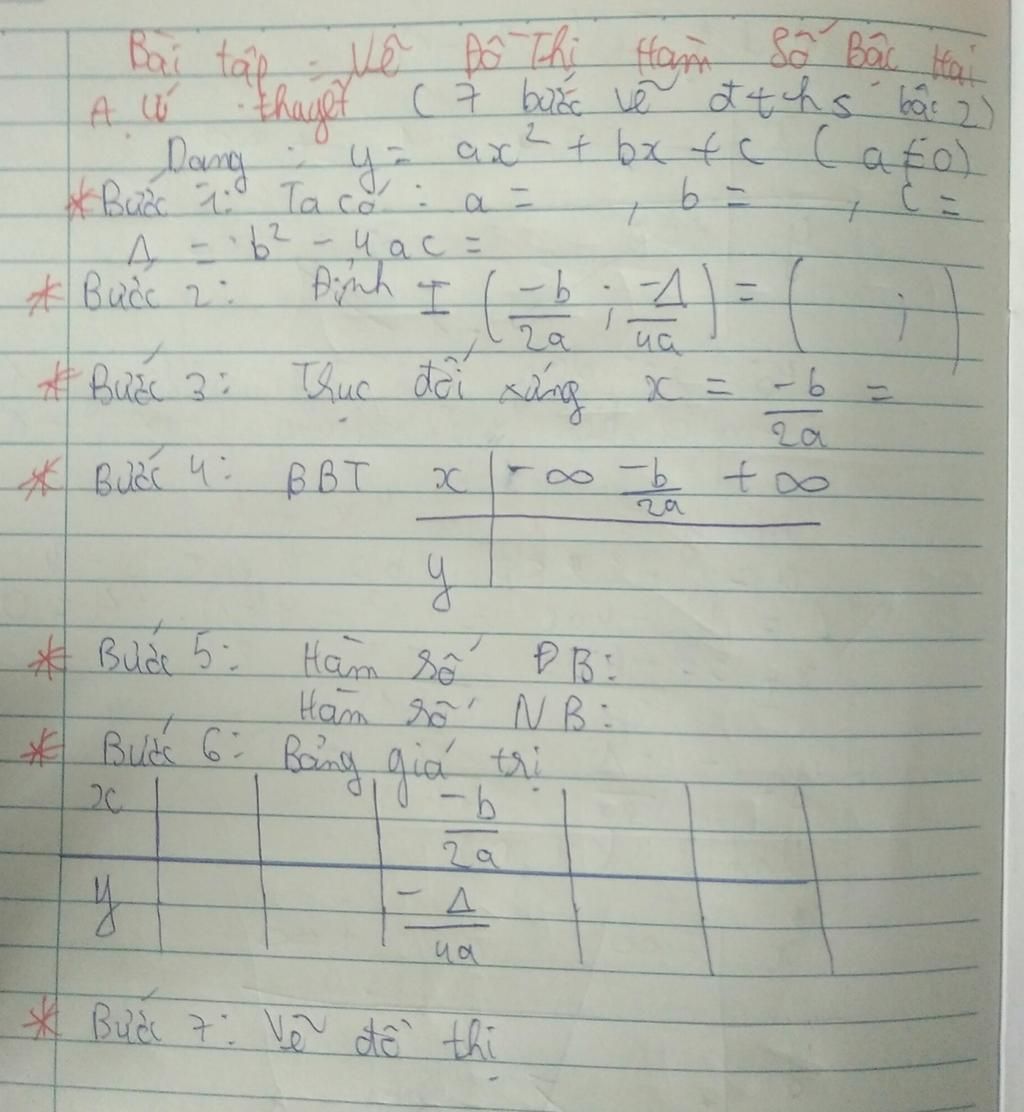 Bài tập : Vẽ Đồ Thị Hàm Số Bậc Hai
A. Lí thuyết ( 7 bước vẽ đths bậc 2)
Dạng : y = ax² + bx + c ( a ≠ 0)
* Bước 1: Ta có : a = , b = , c =
Δ = b² - 4ac =
* Bước 2: Đỉnh I ( -b/2a ; -Δ/4a ) = ( ; )
* Bước 3: Trục đối xứng x = -b/2a =
* Bước 4: BBT x | -∞ -b/2a +∞
y
* Bước 5: Hàm số ĐB:
Hàm số NB:
* Bước 6: Bảng giá trị
x | | | -b/2a | | |
y | | | -Δ/4a | | |
* Bước 7: Vẽ đồ thị